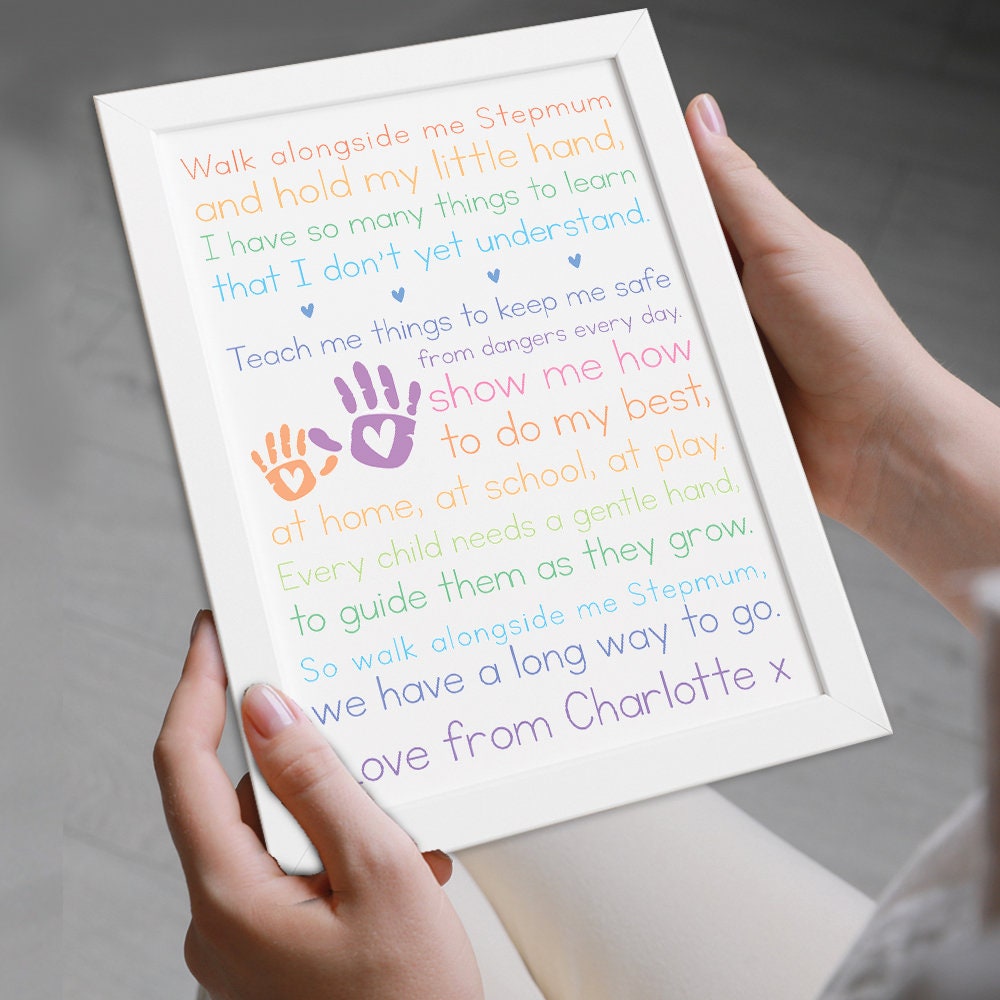 Walk alongside me Stepmum
and hold my little hand,
I have so many things to learn
that I don't yet understand.
Teach me things to keep me safe
from dangers every day.
show me how
to do my best,
at home, at school, at play.
Every child needs a gentle hand,
to guide them as they grow.
So walk alongside me Stepmum,
we have a long way to go.
Love from Charlotte x